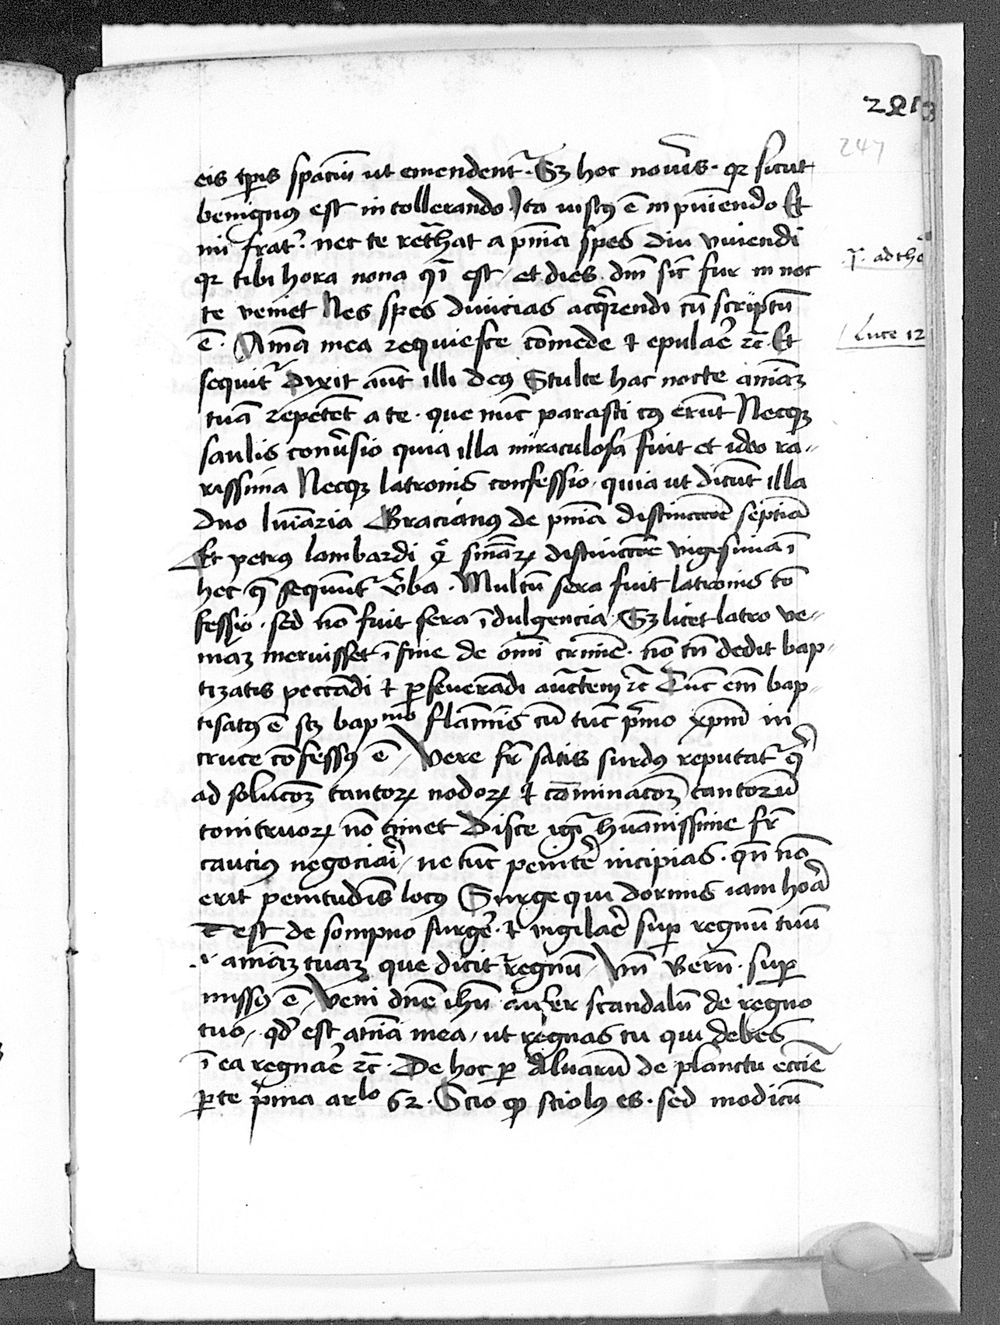 247
eis tpis spaciũ ut emendent². Sz hoc novĩs. qr sicut
benignus est in tollerando Ita iustus ẽ in pũiendo Et
mi frat². nec te ret²hat a pnĩa spes diu vivendi
qr tibi hora nona q̃i est. et dies. dnĩ sic̃ fur in noc
te veniet Nec spes divicias acq²rendi cũ scriptũ
ẽ. Aĩma mea requiesce cõmede et epulaẽ rc̃. Et
sequit² Dixit aũt illi deus Stulte hac nocte aniãz
tuã repetẽt a te. que nũc parasti cuius erũt Necqz
saulis conv̾sio quia illa miraculosa fuit et ideo ra-
rissima Necqz latronis confessio. quia ut dicũt illa
duo lumĩaria Gracianus de pnĩa distinccioẽ septiã
Et petrus lombardi q̃r² sinãrz distinccõe vigesima ĩ
hec q̃ sequũt² v̾ba. Multũ sera fuit latronis cõ
fessio. sed nõ fuit sera ĩdulgencia. Sz licet latro ve-
niaz meruisset ĩ fine de omĩ crimĩe. nõ tñ dedit bap-
tizatis peccãdi et p̱severãdi auctem̃ rc̃ Tũc em̃ bap-
tisatus ẽ scz bapmo flamĩnis cũ tũc p²mo xpm̃ in
cruce cõfessus ẽ Vere fr̃ satis surdus reputat² q̃
ad solucõz tantorz nodorz et cõminacõz tantorũ
tonitruorz nõ timet Disce igi² humãnissime fr̃
caucius negociaĩ. ne tũc penitẽ incipias. qñ nõ
erit penitudĩs locus Surge qui dormis iam hora
est de sompno surgẽ. et vigilaẽ sup̱ regnũ tuũ
.i. aniãz tuaz que dicit² regnũ. Vñ Bern̄. sup̱
missus ẽ. Veni dnẽ ihũ aufer scandalũ de regno
tuo. qd est aniã mea. ut regnas tu qui debes
ĩ ea regnaẽ rc̃. De hoc p̱ Alvarũ de planctu eccĩe
p̱te p²ma arlo 62. Scio qp sciolus es. sed modicũ
.I. ad the
Luce 12